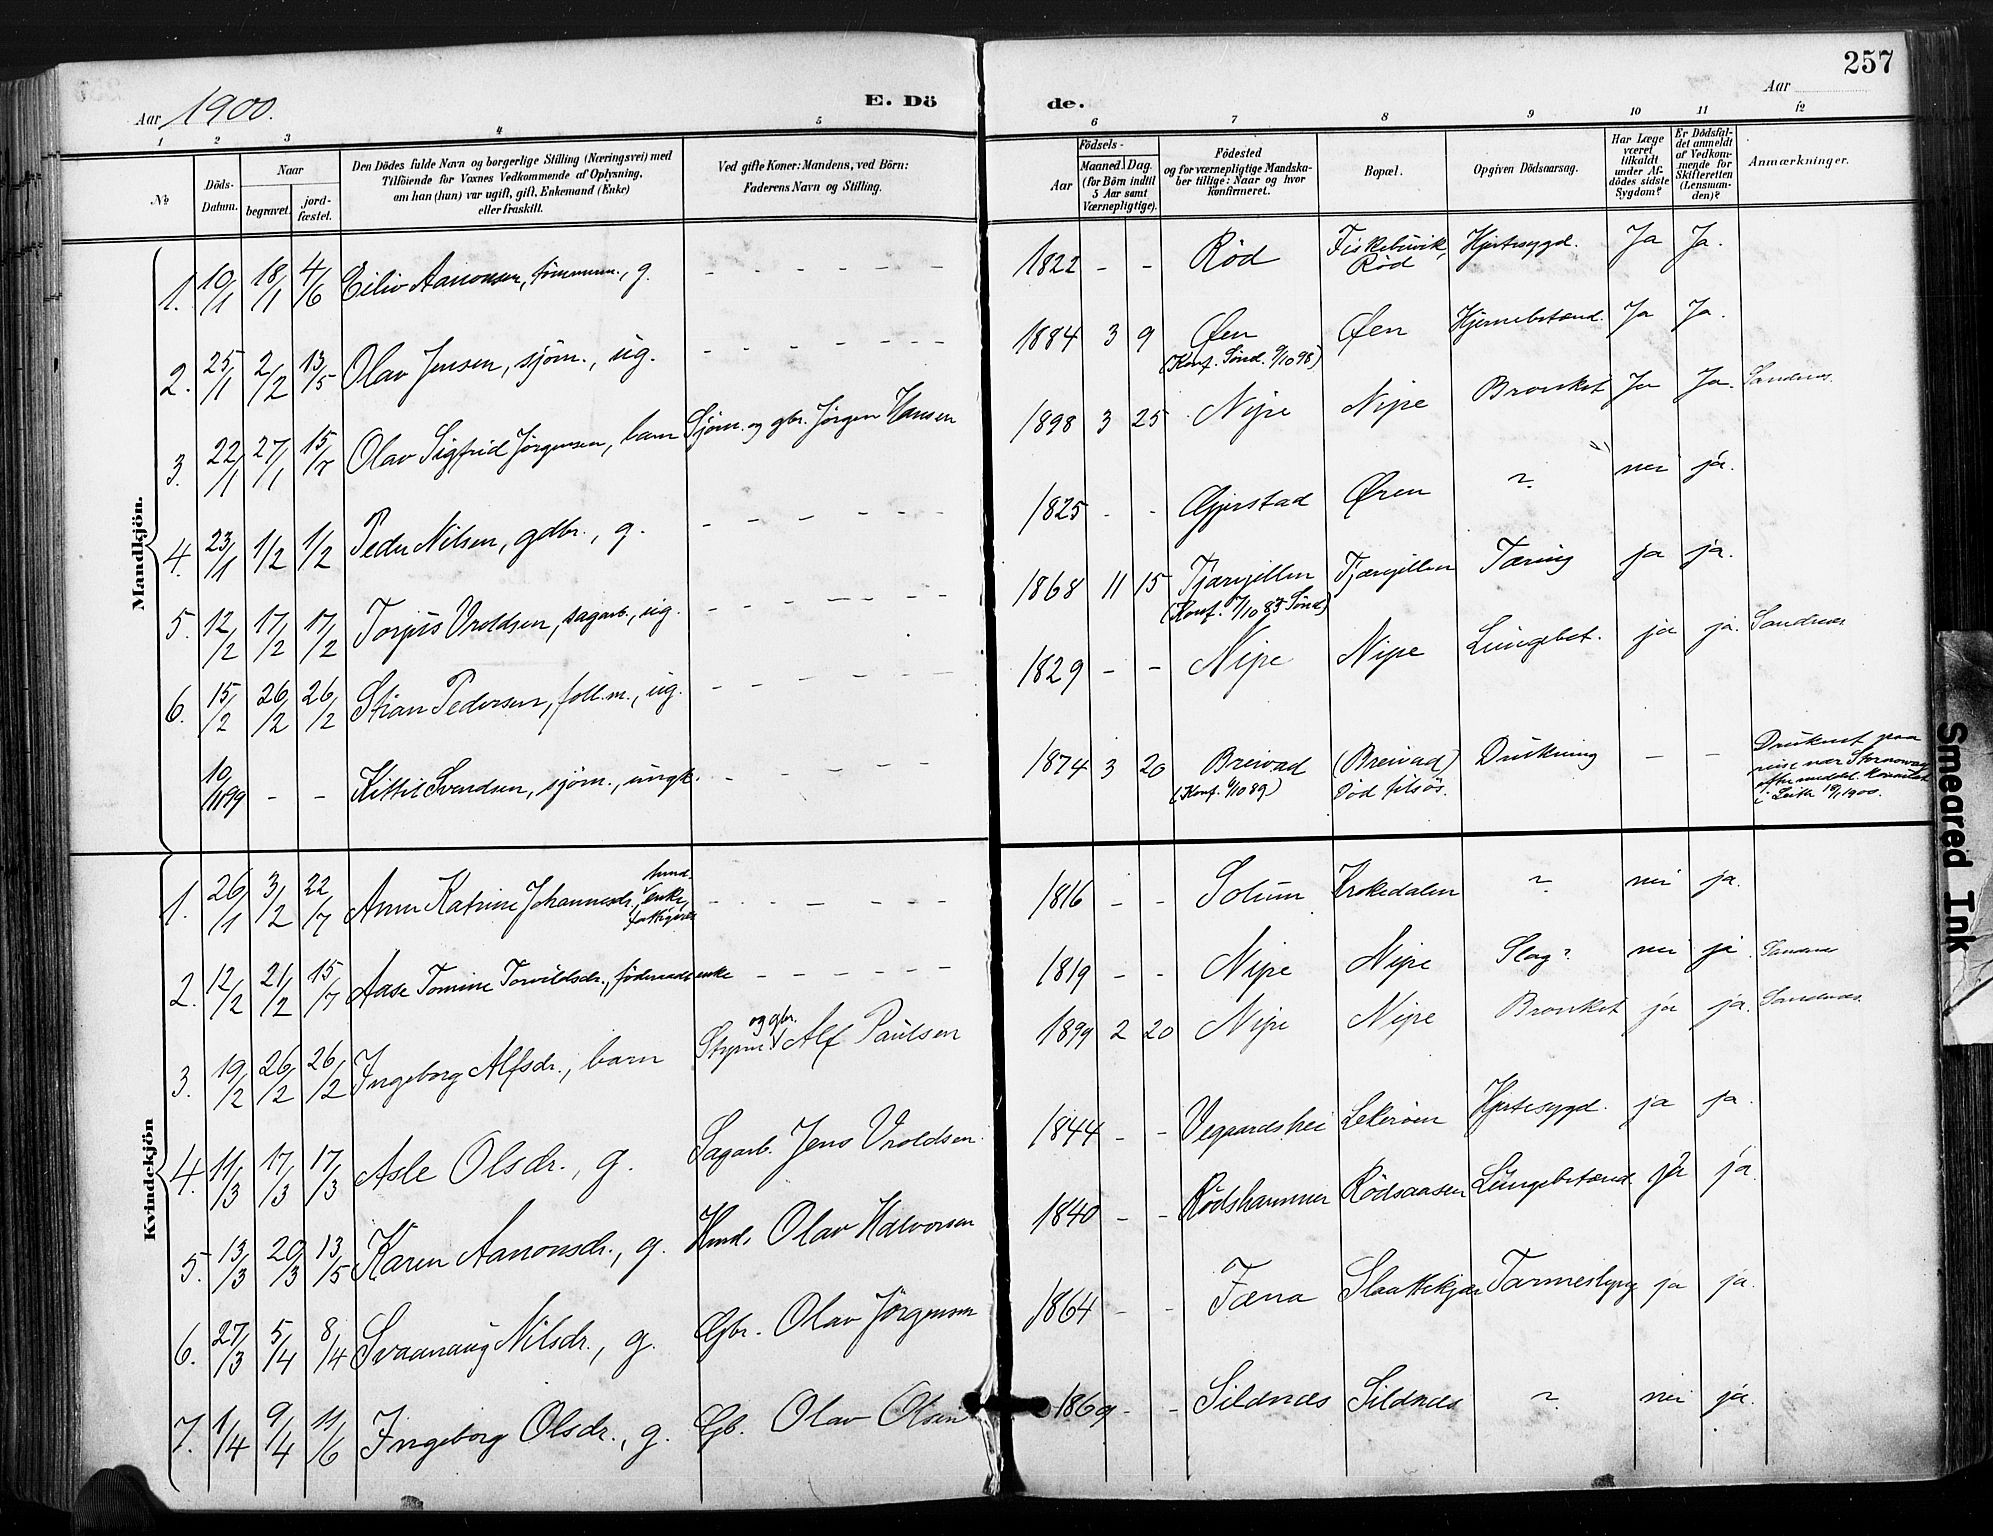 257
Aar 1900.
E. Dö de.
Aar
1 2 3 4 5 6 7 8 9 10 11 12
№ Döds-Datum. Naar begravet. jord-fæstet. Den Dödes fulde Navn og borgerlige Stilling (Næringsvei) med Tilföiende for Voxnes Vedkommende af Oplysning, om han (hun) var ugift, gift, Enkemand (Enke) eller fraskilt. Ved gifte Koner: Mandens, ved Börn: Faderens Navn og Stilling. Födsels- Aar Maaned. Dag. (for Börn indtil 5 Aar samt Værnepligtige). Födested og for værnepligtige Mandskaber tillige: Naar og hvor konfirmeret. Bopæl. Opgiven Dödsaarsag. Har Læge været tilkaldt under Afdödes sidste Sygdom? Er Dödsfaldet anmeldt af Vedkommende for Skifteretten (Lensmanden)? Anmærkninger.
Mandkjön.
1. 10/1 18/1 4/6 Eiliv Aanonsen, tømmerm., g. - - - 1822 - - Rød Fiskebuvik, Rød Hjertesygd. Ja Ja.
2. 25/1 2/2 13/5 Olav Jensen, sjøm., ug. - - - 1884 3 9 Øen (Konf. Sønd. 9/10 98) Øen Hjernebetænd. Ja Ja.
3. 22/1 27/1 15/7 Olav Sigfrid Jørgensen, barn Sjøm. og gbr. Jørgen Hansen 1898 3 25 Nipe Nipe Bronkit Ja Ja. Sandnæs.
4. 23/1 1/2 1/2 Peder Nilsen, gdbr., g. - - - 1825 - - Gjerstad Øren ? nei ja.
5. 12/2 17/2 17/2 Torjus Vroldsen, sagarb., ug. - - - 1868 11 15 Tjæregillen (Konf. 7/10 83 Sønd) Tjæregillen Tæring ja ja.
6. 15/2 26/2 26/2 Stian Pedersen, foll.m., ug. - - - 1829 - - Nipe Nipe Lungebet. ja ja. Sandnæs
10/11 99 - - Kittil Svendsen, sjøm., ungk. - - - 1874 3 20 Breivad (Konf. 6/10 89) (Breivad) Død tilsøs. Drukning - - Druknet paa reise nær Stornoway efter meddel. i Leith 19/1 1900.
Kvindekjön
1. 26/1 3/2 22/7 Anne Katrine Johannesdr., hmd. enke, fattig - - - 1816 - - Solum Krokedalen ? nei ja.
2. 12/2 21/2 15/7 Aase Tomine Torvildsdr., føderaadsenke - - - 1819 - - Nipe Nipe Slag? nei ja. Sandnæs
3. 19/2 26/2 26/2 Ingeborg Alfsdr., barn Styrm. og gbr. Alf Paulsen 1899 2 20 Nipe Nipe Bronkit ja ja. Sandnæs.
4. 11/3 17/3 17/3 Asle Olsdr., g. Sagarb. Jens Vroldsen. 1844 - - Vegaardshei Lekerøen Hjertesygd. ja ja.
5. 13/3 20/3 13/5 Karen Aanonsdr., g. Hmd. Olav Halvorsen 1840 - - Rødshammer Rødsaasen Lungebetænd. ja ja.
6. 27/3 5/4 8/4 Svaanaug Nilsdr., g. Gbr. Olav Jørgensen 1864 - - Fæna Slaattekjær ja ja.
7. 1/4 9/4 11/6 Ingeborg Olsdr., g. Gb. Olav Olsen 1869 - - Sildnæs Sildnæs ? nei ja.
Smeared Ink